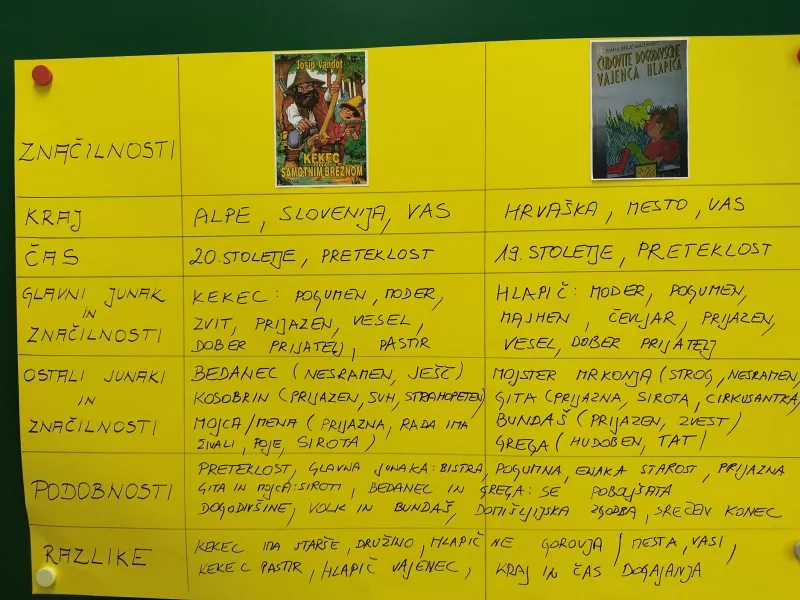 Josip Vandot
KEKEC
NAD
SAMOTNIM BREZNOM
IVANA BRLIĆ-MAŽURANIĆ
ČUDOVITE DOGODIVŠČINE
VAJENCA HLAPIČA
ZNAČILNOSTI
KRAJ
ALPE, SLOVENIJA, VAS
HRVAŠKA, MESTO, VAS
ČAS
20. STOLETJE, PRETEKLOST
19. STOLETJE, PRETEKLOST
GLAVNI JUNAK
IN
ZNAČILNOSTI
KEKEC: POGUMEN, MODER,
ZVIT, PRIJAZEN, VESEL,
DOBER PRIJATELJ, PASTIR
HLAPIČ: MODER, POGUMEN,
MAJHEN, ČEVLJAR, PRIJAZEN,
VESEL, DOBER PRIJATELJ
OSTALI JUNAKI
IN
ZNAČILNOSTI
BEDANEC (NESRAMEN, JEŠČ)
KOSOBRIN (PRIJAZEN, SUH, STRAHOPETEN)
MOJCA/MENA (PRIJAZNA, RADA IMA
ŽIVALI, POJE, SIROTA)
MOJSTER MRKONJA (STROG, NESRAMEN
GITA (PRIJAZNA, SIROTA, CIRKUSANTKA)
BUNDAŠ (PRIJAZEN, ZVEST)
GREGA (HUDOBEN, TAT)
PODOBNOSTI
PRETEKLOST, GLAVNA JUNAKA: BISTRA, POGUMNA, ENAKA STAROST, PRIJAZNA
GITA IN MOJCA: SIROTI, BEDANEC IN GREGA: SE POBOLJŠATA
DOGODIVŠINE, VOLK IN BUNDAŠ, DOMIŠLJIJSKA ZGODBA, SREČEN KONEC
RAZLIKE
KEKEC IMA STARŠE, DRUŽINO, HLAPIČ NE. GOROVJA / MESTA, VASI,
KEKEC PASTIR, HLAPIČ VAJENEC, KRAJ IN ČAS DOGAJANJA